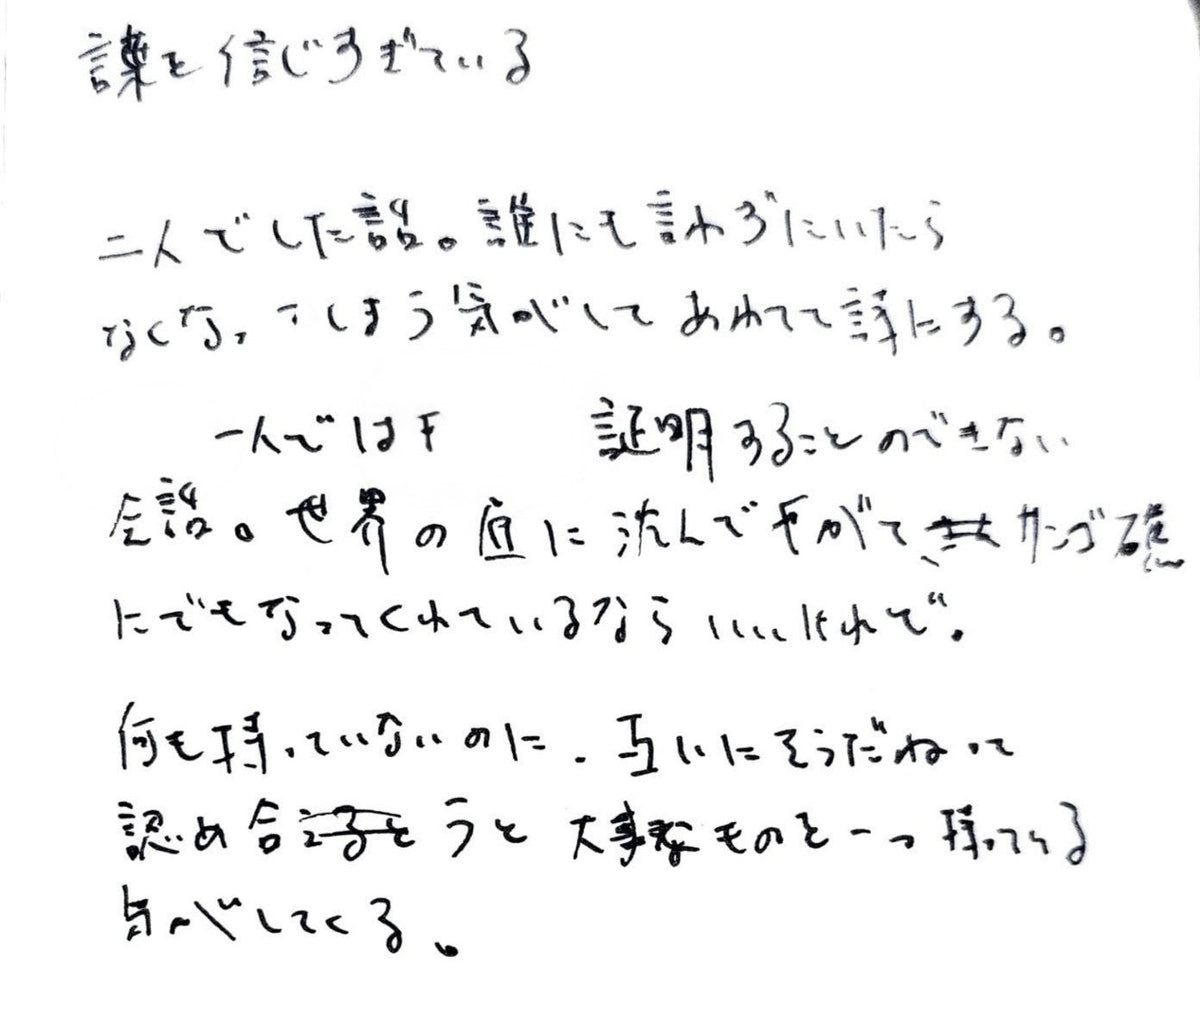 言葉を信じすぎている
二人でした話。誰にも言わずにいたら
なくなってしまう気がしてあわてて詩にする。
一人ではもう 証明することのできない
会話。世界の底に沈んでやがてサンゴ礁
にでもなってくれているならいいけれど、
何も持っていないのに、互いにそうだねって
認め合うと大事なものを一つ持ってる
気がしてくる。